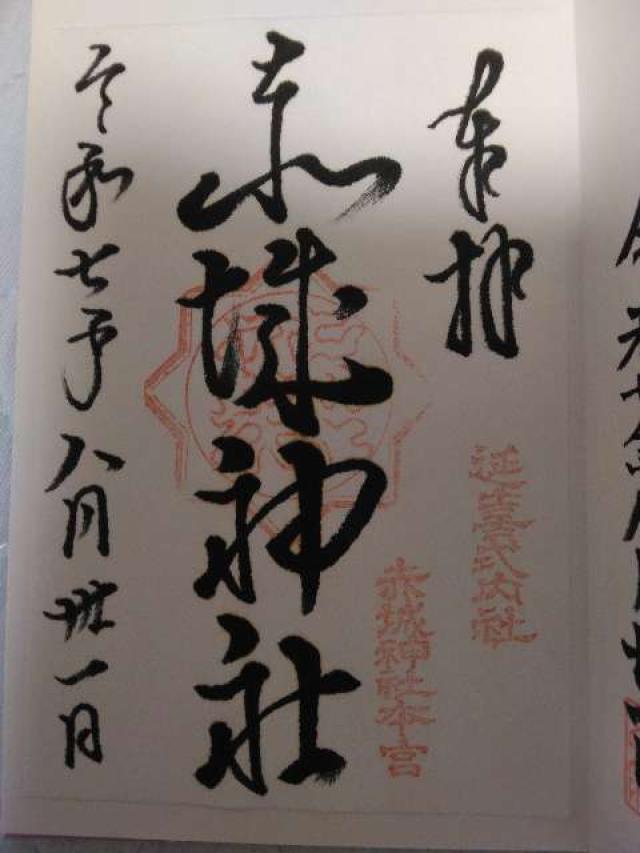 奉拝
延喜式内社
赤城神社本宮
赤城神社
令和七年八月卅一日